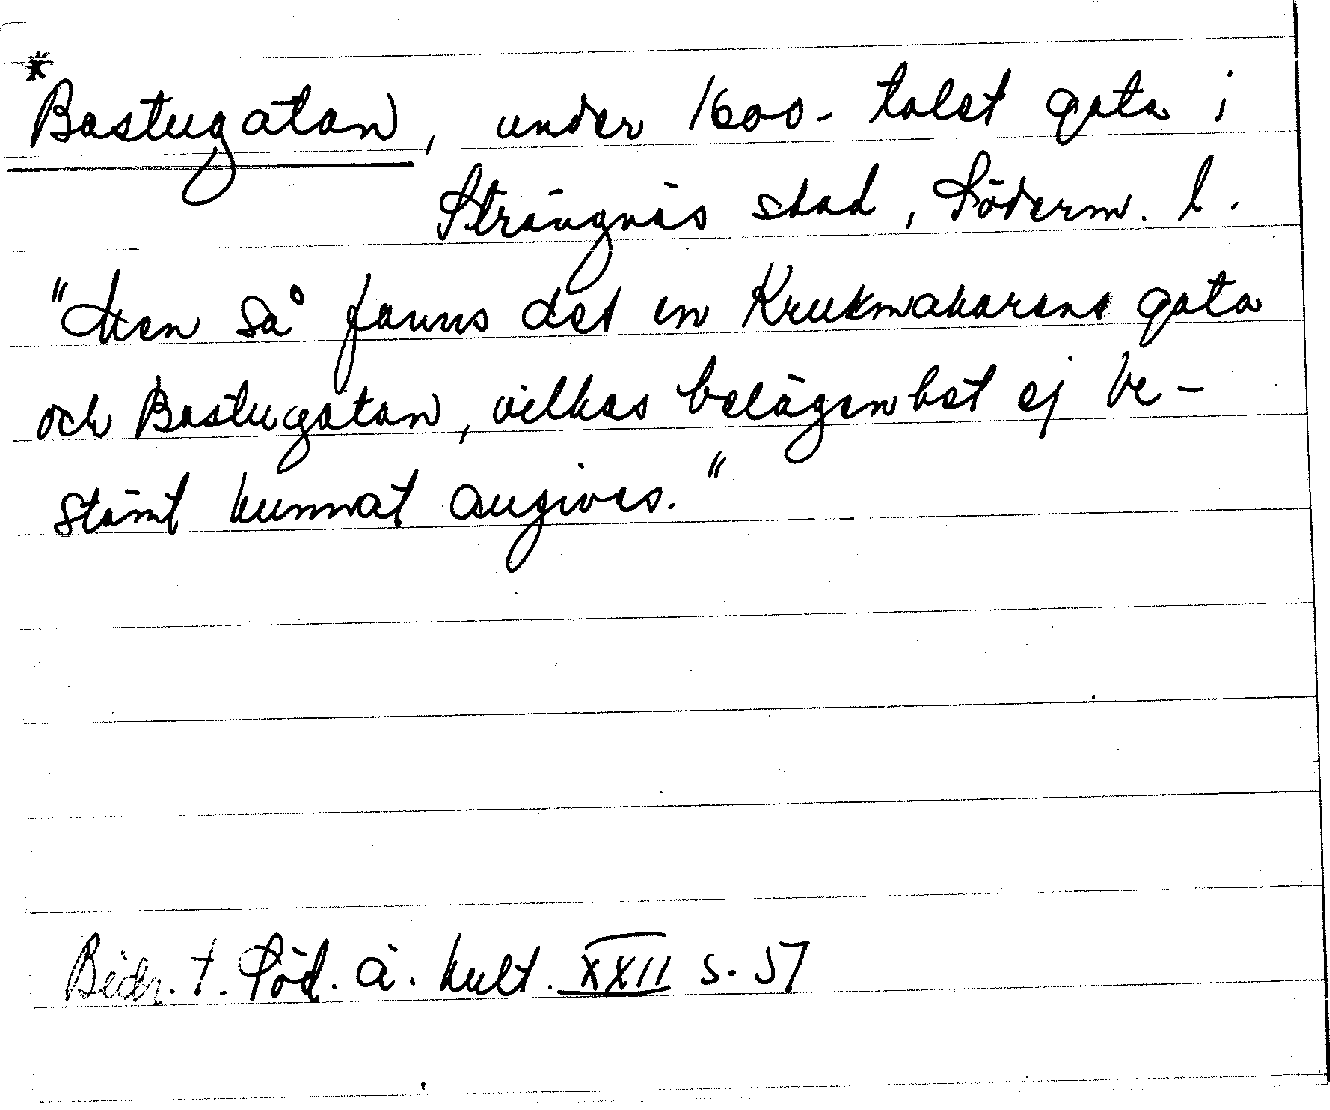 *
Bastugatan, under 1600-talet gata i
Strängnäs stad, Söderm. l.
"Men så fanns det en Krukmakarens gata
och Bastugatan, vilkas belägenhet ej be-
stämt kunnat angives."
Bidr. t. Söd. ä. kult. XXII s. 57